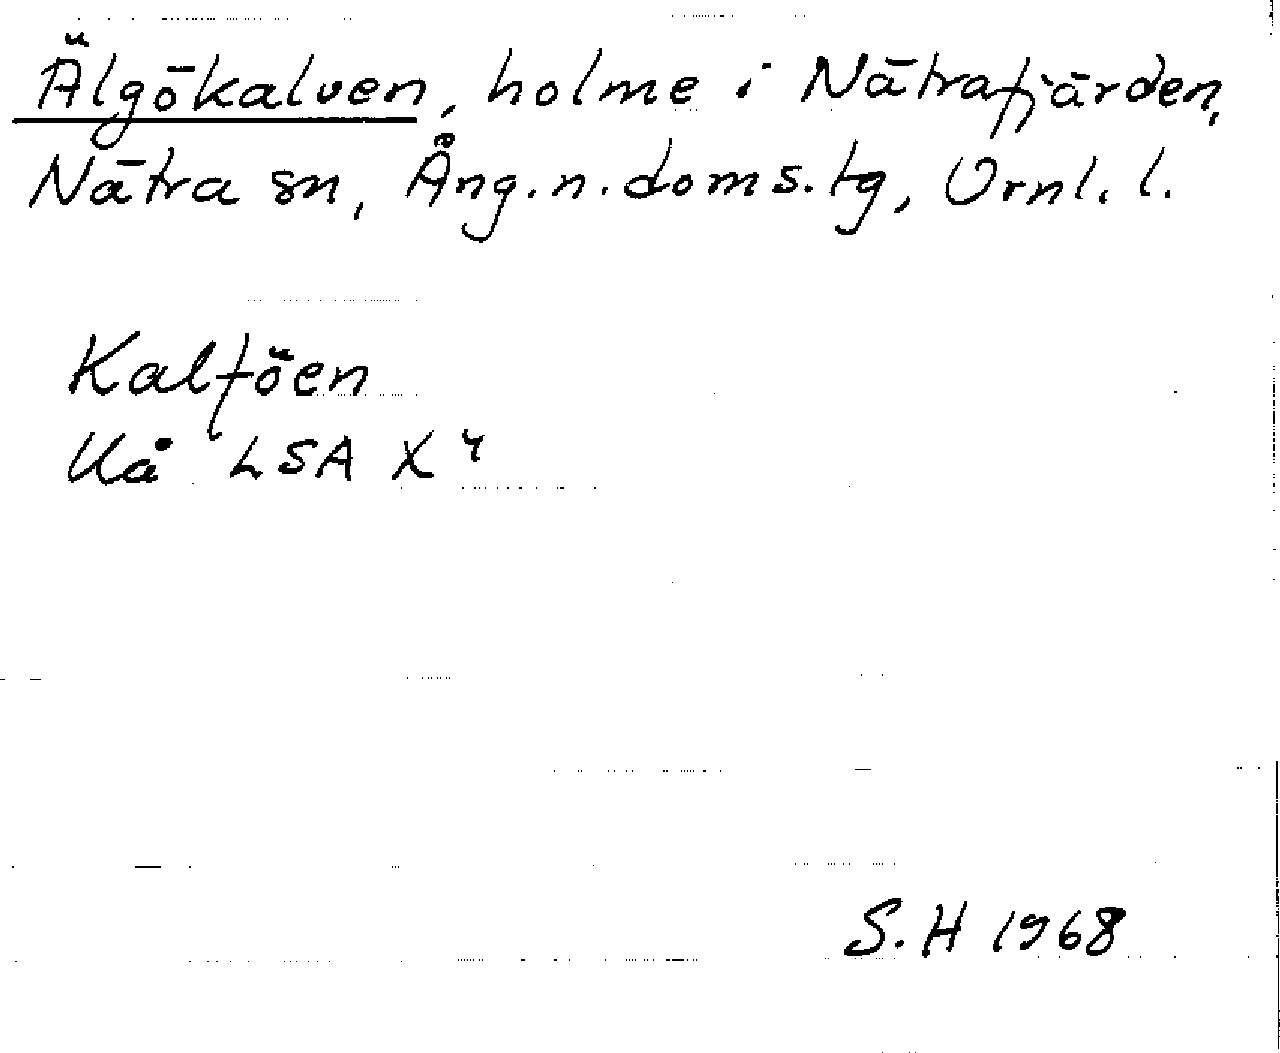 Älgökalven, holme i Nätrafjärden,
Nätra sn, Ång.n.doms.tg, Örnl. l.
Kalföen
Kå LSA X 4
S.H 1968